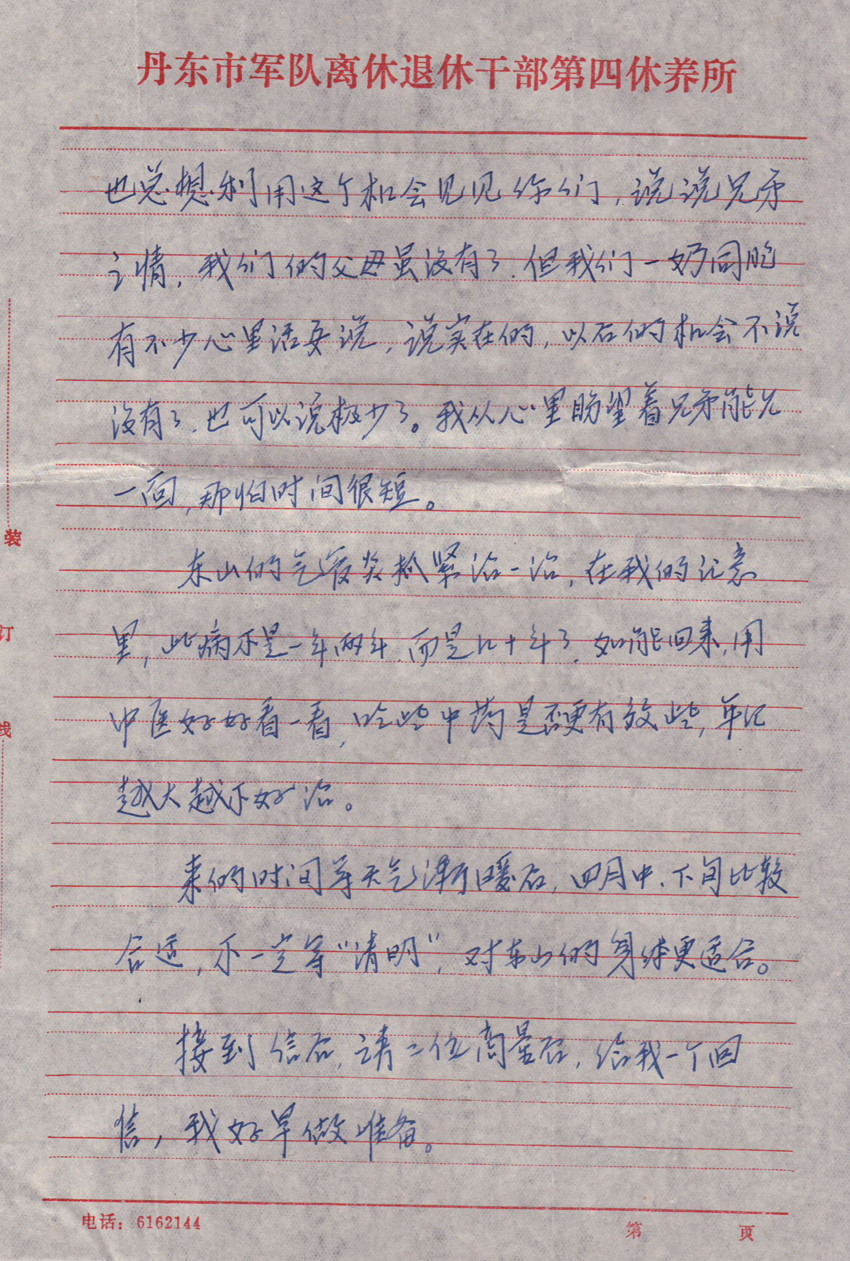 丹东市军队离休退休干部第四休养所
也总想利用这个机会见见你们，说说兄弟
之情，我们的父母虽没有了，但我们一奶同胞
有不少心里话要说，说实在的，以后的机会不说
没有了，也可以说极少了。我从心里盼望着兄弟能见
一面，那怕时间很短。
东山的气管炎抓紧治一治，在我的记意
里，此病不是一年两年，而是几十年了，如能回来，用
中医好好看一看，吃些中药是否更有效些，年纪
越大越不好治。
来的时间等天气渐暖后，四月中、下旬比较
合适，不一定等“清明”，对东山的身体更适合。
接到信后，请二位商量后，给我一个回
信，我好早做准备。
装
订
线
电话：6162144
第 页